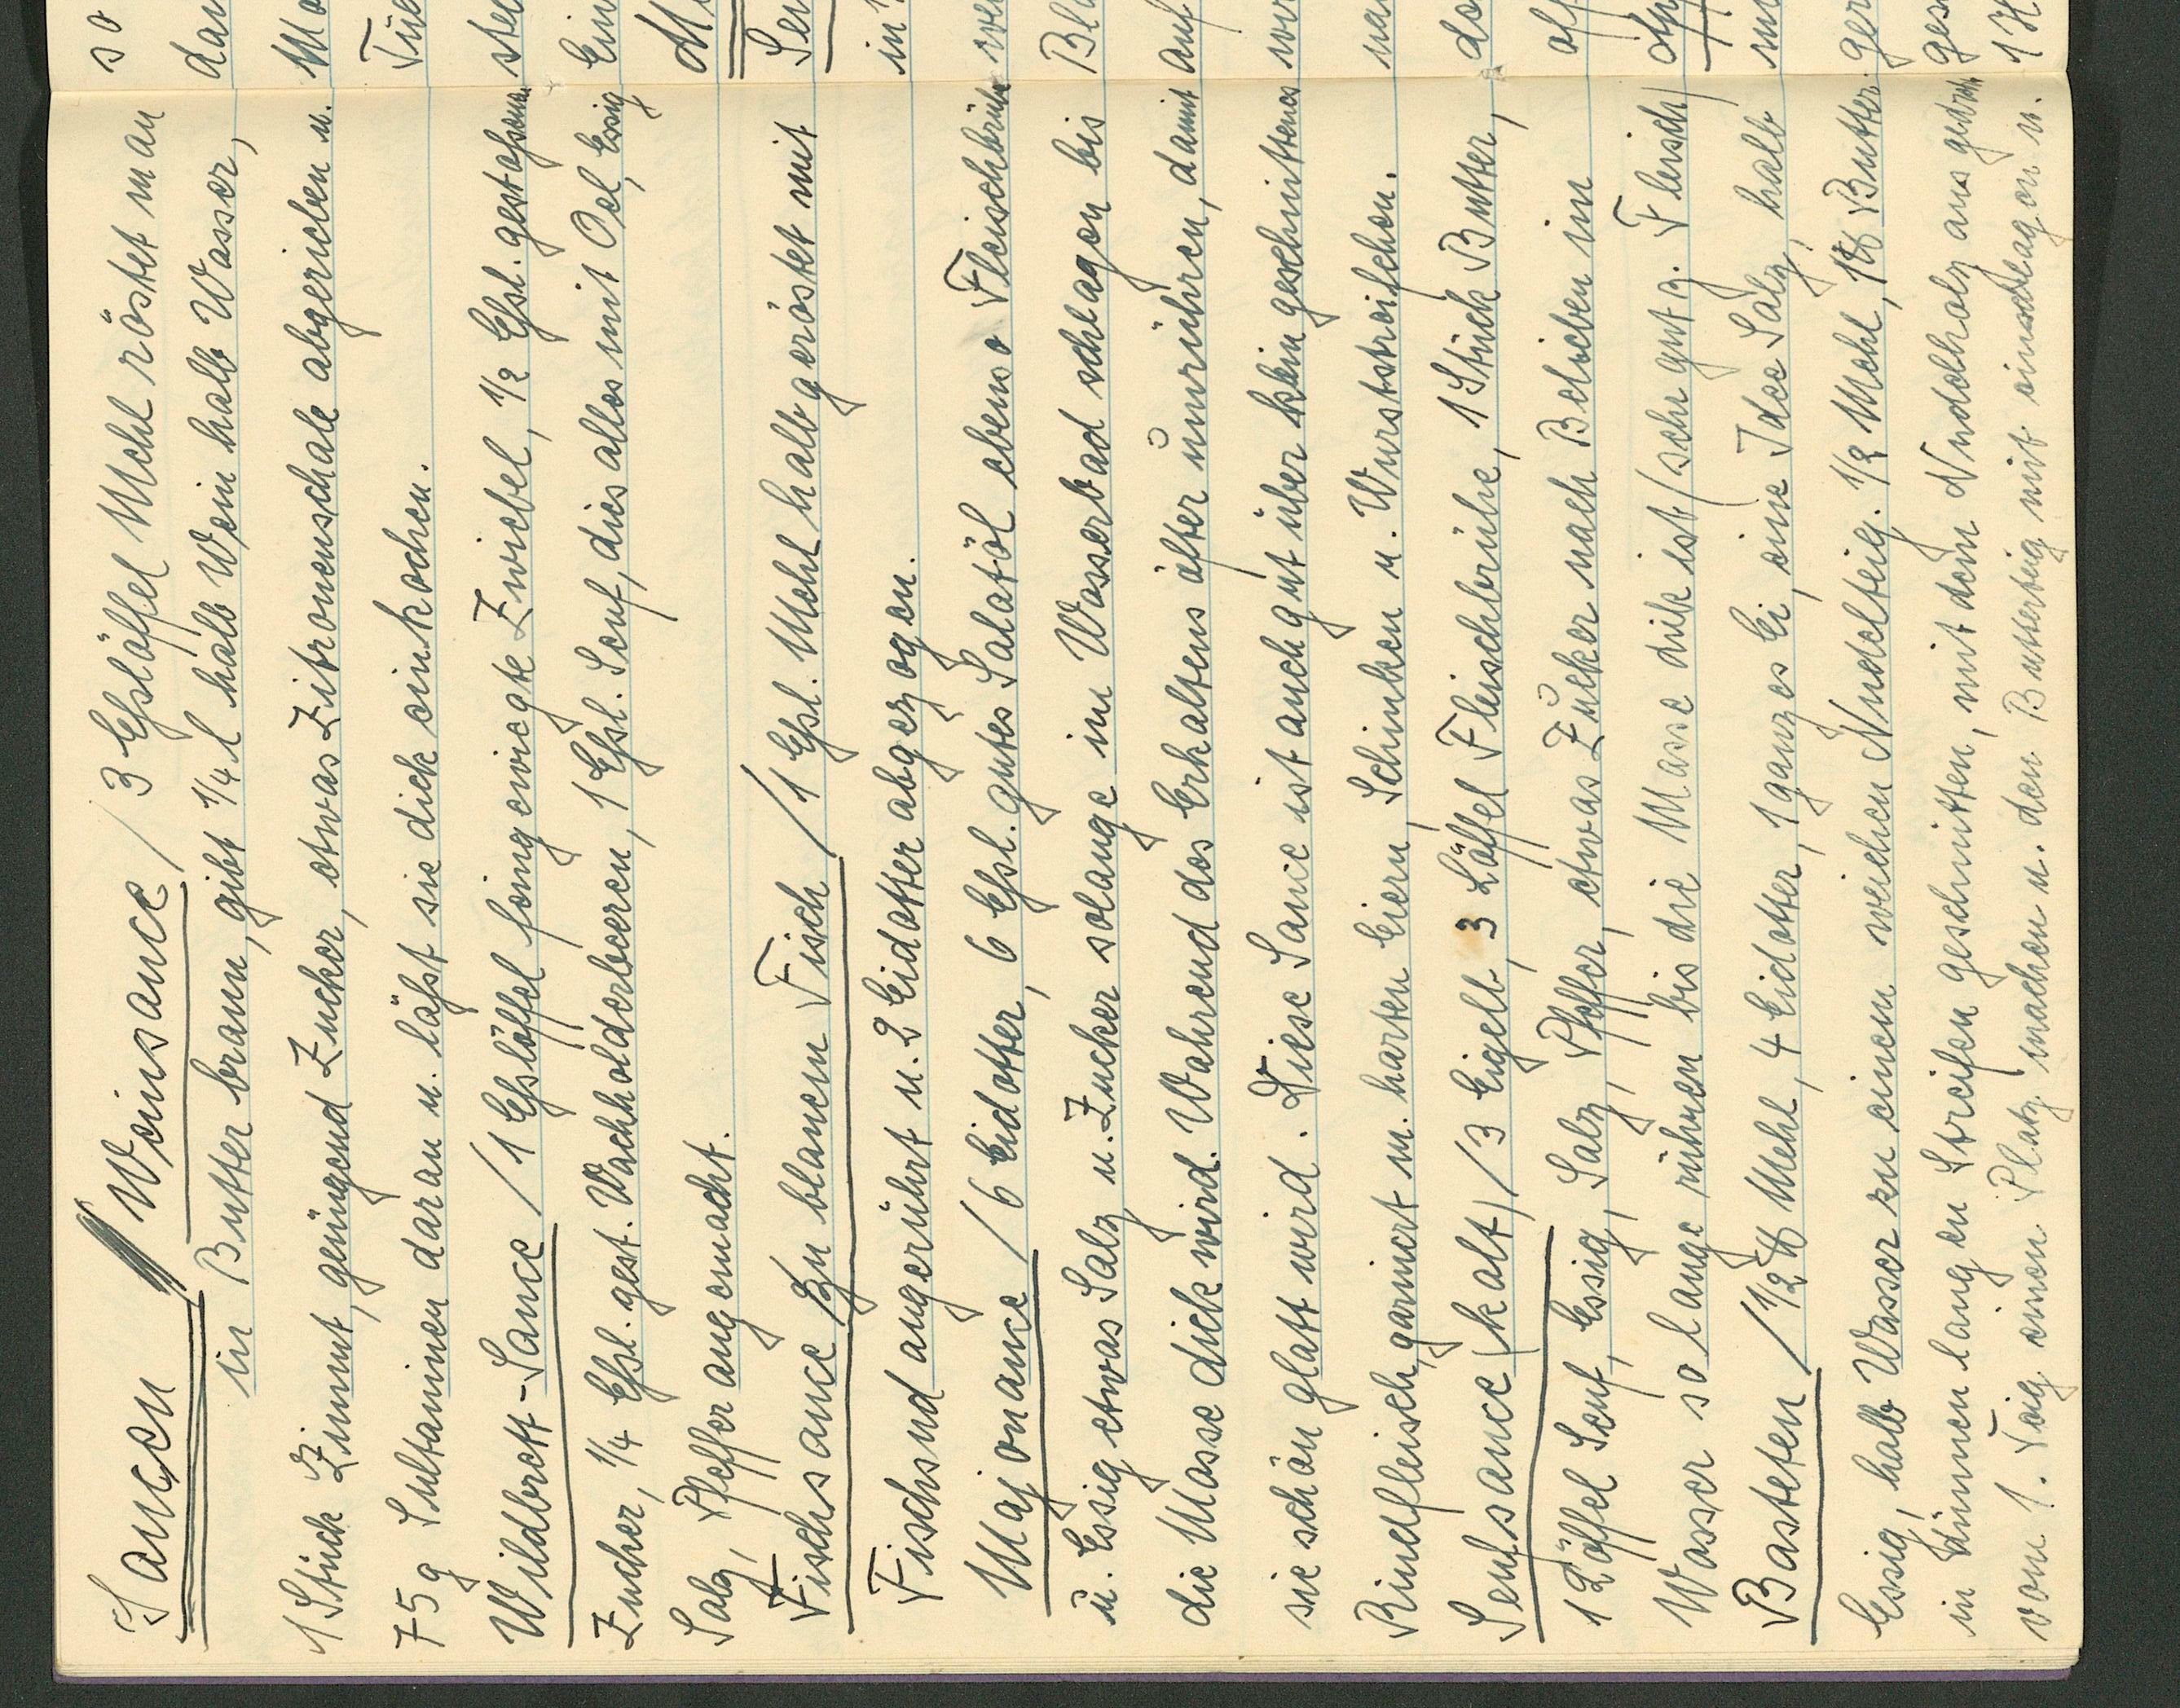 Saucen Weinsauce / 3 Eßlöffel Mehl röstet man
in Butter braun, gibt 1/4 l halb Wein halb Wasser,
1 Stück Zimmt, genügend Zucker, etwas Zitronenschale abgerieben u.
75 g Sultaninen daran u. läßt sie dick einkochen.
Wildbrett-Sauce / 1 Eßlöffel feingewiegte Zwiebel, 1/2 Eßl. gestoßenen
Zucker, 1/4 Eßl. gest. Wachholderbeeren, 1 Eßl. Senf, dies alles mit Oel, Essig
Salz, Pfeffer angemacht.
Fischsauce zu blauem Fisch / 1 Eßl. Mehl halbgeröstet mit
Fischsud angerührt u. 2 Eidotter abgezogen.
Majonauce / 6 Eidotter, 6 Eßl. gutes Salatöl ebenso Fleischbrühe
u. Essig etwas Salz u. Zucker solange im Wasserbad schlagen bis
die Masse dick wird. Während des Erkaltens öfter umrühren, damit
sie schön glatt wird. Diese Sauce ist auch gut über klein geschnittenes
Rindfleisch, garniert m. harten Eiern, Schinken u. Wurststreifchen.
Senfsauce (kalt) / 3 Eigelb, 3 Löffel Fleischbrühe, 1 Stück Butter,
1 Löffel Senf, Essig, Salz, Pfeffer, etwas Zucker nach Belieben im
Wasser so lange rühren bis die Masse dick ist (sehr gut z. Fleisch)
Basteten / 1/2 ℔ Mehl, 4 Eidotter, 1 ganzes Ei, eine Idee Salz, halb
Essig, halb Wasser zu einem weichen Nudelteig. 1/2 Mehl, 1 ℔ Butter
in dünnen langen Streifen geschnitten, mit dem Nudelholz ausgedr
vom 1. Teig einen Platz machen u. den Butterteig mit einschlagen u.
so
dan
Ma
Tü
ste
Ein
Sen
in
we
Bla
auf
wir
na
do
off
mi
ger
ges
1